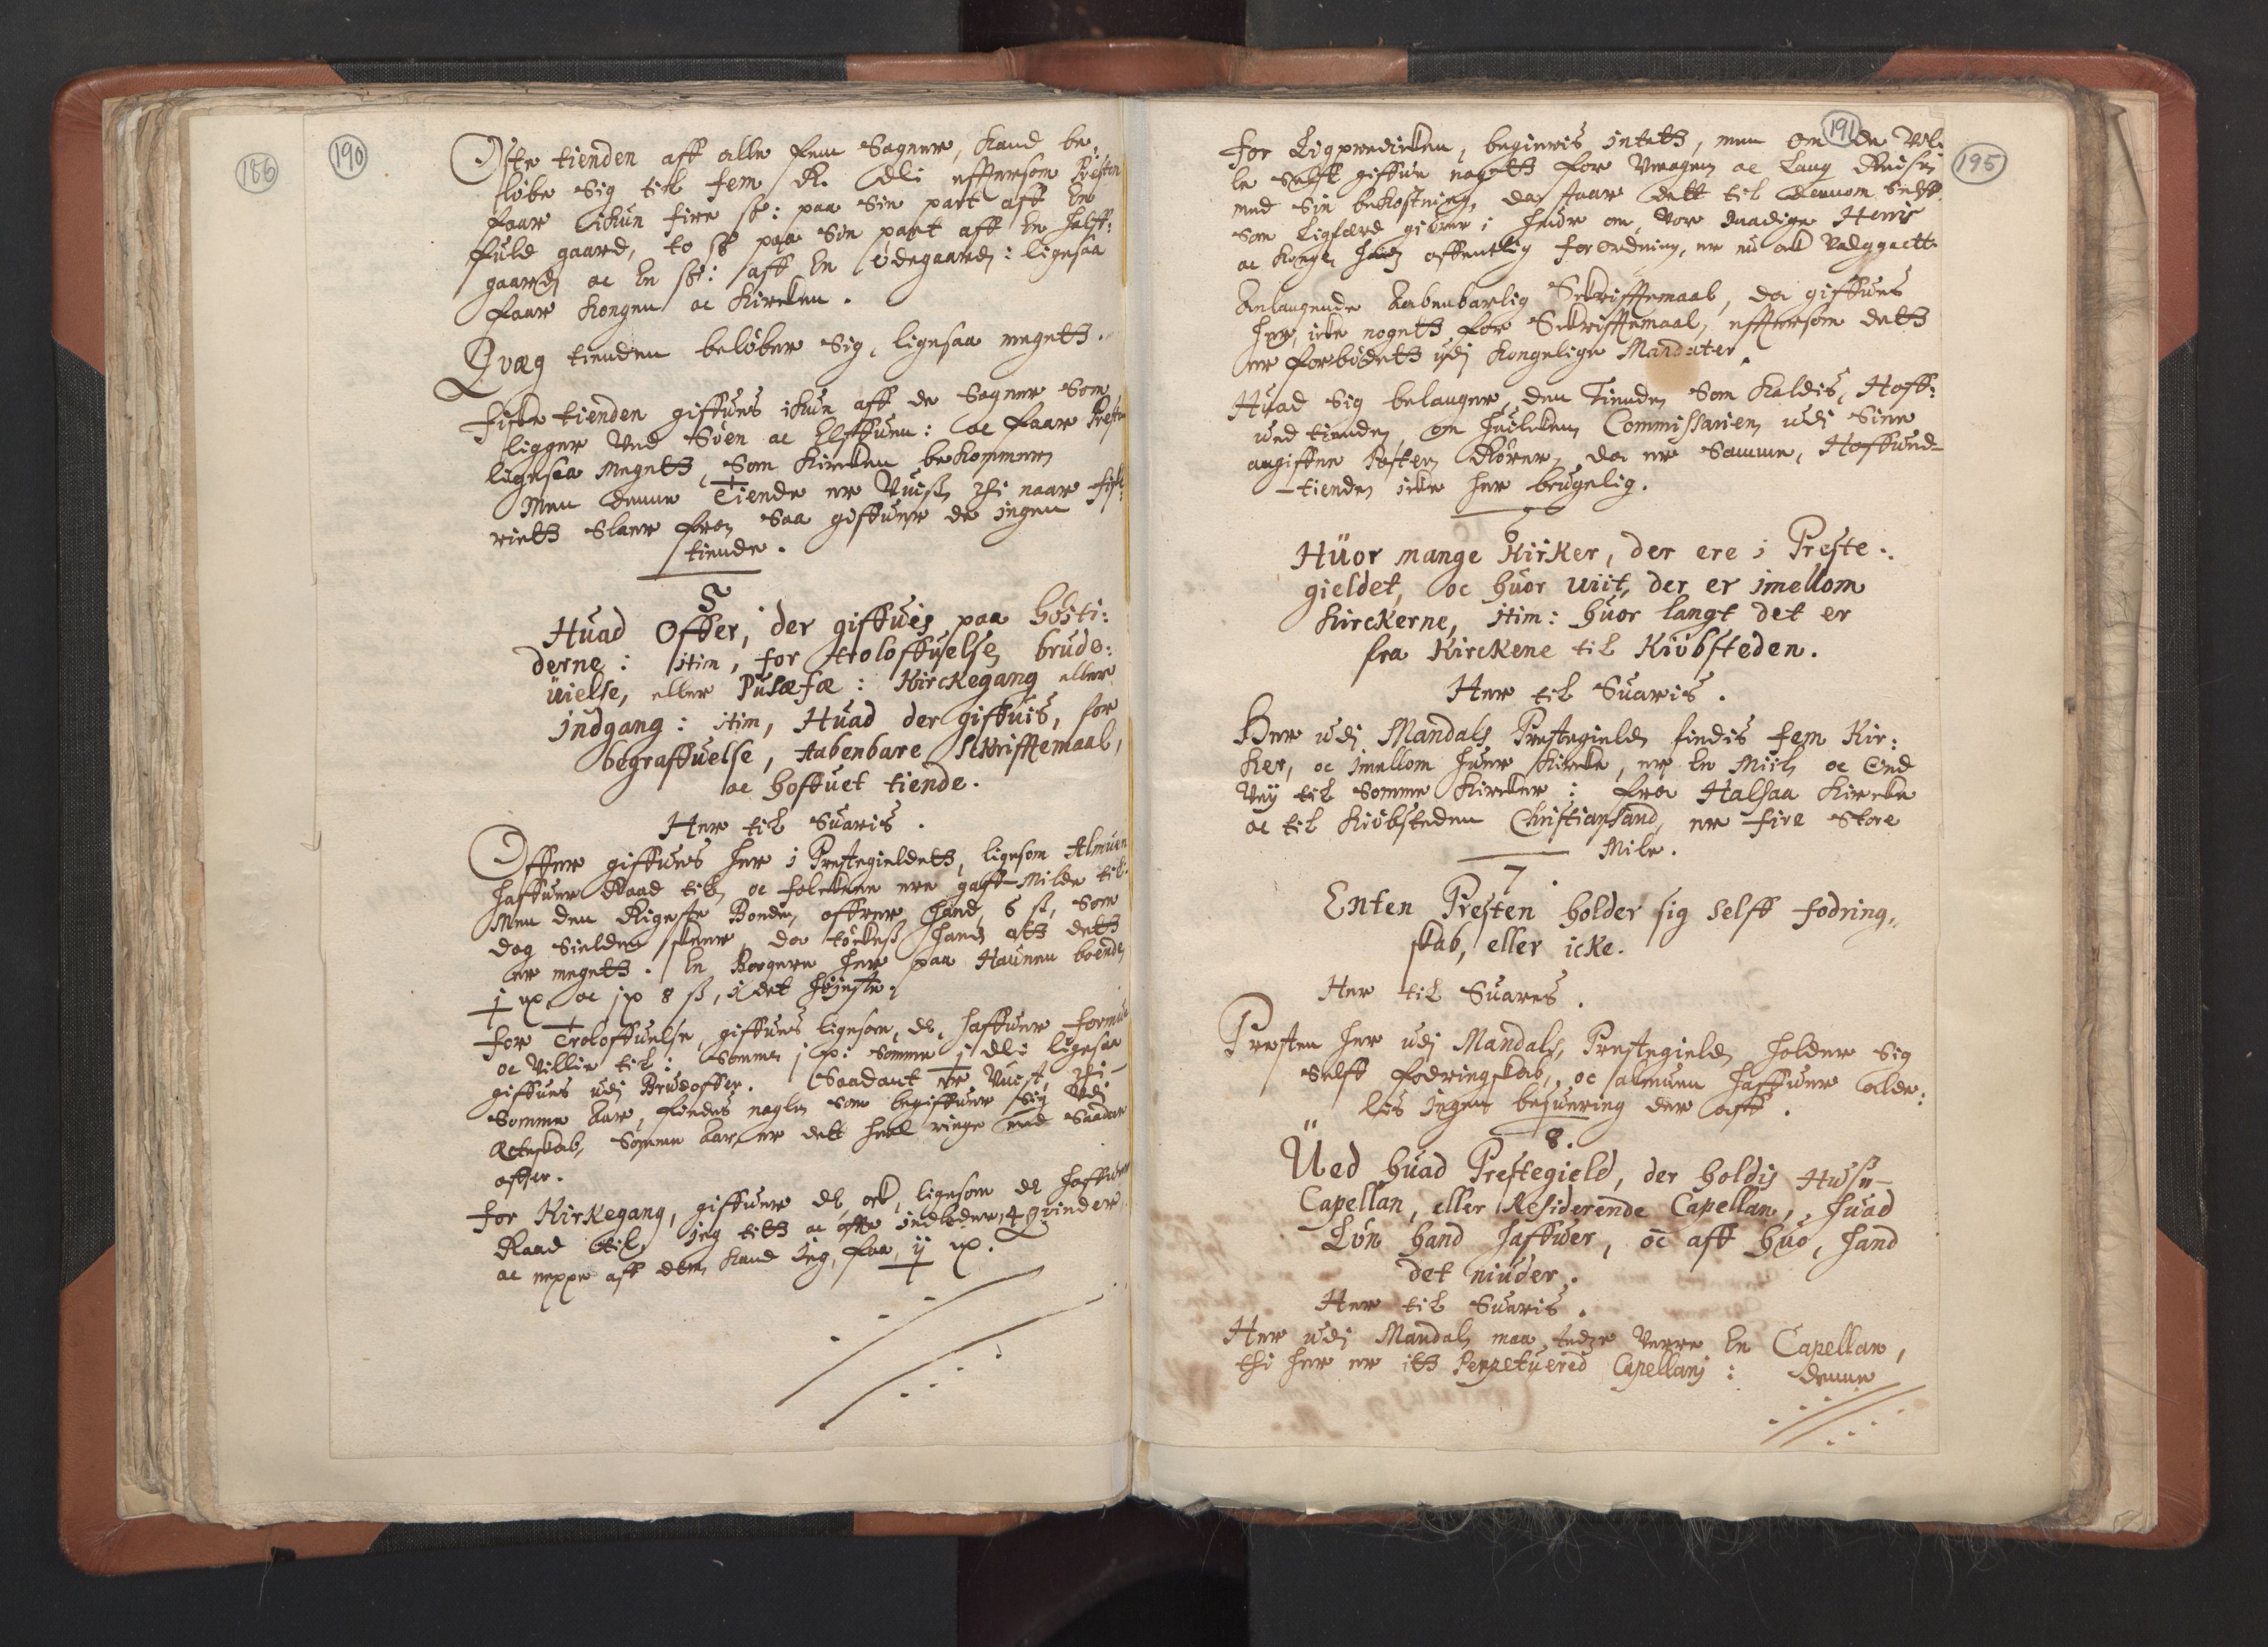 186
190
Oste tienden aff alle fem Sogner, kand be,
løbe Sig till fem R. dlr: effttersom Presten
faar ickun fire sk: paa Sin part aff En
fuld gaard, to sk paa Sin part aff En halff:
gaard oc En sk: aff En ödegaard: ligesaa
faar Kongen oc Kircken.
Qvæg tienden beløber Sig, ligesaa megett.
Fiske tienden giffues ickun aff de Sogner Som
ligger Ved Söen oc Elffuen: oc faar Presten
ligesaa Megett, Som Kircken bekommer
Men denne Tiende er Uuiss, thi naar fisk:
riett Slaer fra Saa giffuer de ingen
tiende.
5
Huad Offer, der giffues paa Hösti:
derne: itim, for troloffuelse, brude:
üielse, eller Pusæfæ: Kirckegang eller
indgang: itim, Huad der giffuis, for
begraffuelse, Aabenbare Skrifftemaal,
oc hoffuet tiende.
Her til Suaris.
Offer giffues her i Prestegieldett, ligesom Almuen
haffuer Raad till, oc folckene ere gaff-Milde til.
Men den Rigeste Bonde, offrer hand 6 ß, Som
dog Sielden skeer, da töckess hand att dett
er megett. En Borgere her paa Haunen boende
j oc jx 8 ß, i det höjeste.
for Troloffuelse, giffues ligesom, de, haffuer formue
oc Villie till: Somme j Somme j dlr ligesaa
giffues udi Brudoffer. Saadant er Uuist, thi
Somme Aar, findes nogle Som begiffuer Sig Udi
Ecteskab, Somme Aar er dett heel ringe med Saadan
offer.
for Kirkegang, giffuer de, ock, ligesom de haffuer
Raad till, jeg titt oc offte indleder 4 qvinder,
oc neppe aff dem kand Jeg, faa ij
191
195
for Ligpredicken, begieris intett, men om de Vil.
le Selff giffue nogett for Umagen oc Lang Reisen
med Sin bekostning, da staar dett til dennom Selff.
Som Ligferd giörer i huor om, Vor naadige Herris
oc Kongis hans offentlig forordning, er nü ock Udgaaett.
Anlangende Aabenbarlig Skrifftemaal, da giffues
her, icke nogett for Skrifftemaal, efftersom dett
er forbödett udj Kongelige Mandater.
Huad Sig belanger, den Tiende Som kaldis, Hoff:
ued tiende, om huilcken Commissarien udi Sine
angiffne Poster Rörer, da er Samme, Hoffued-
-tiende icke her brugelig.
6
Hüor mange Kirker, der ere i Preste:
gieldet, oc huor uiit, der er imellom
Kirckerne, itim: huor langt det er
fra Kirckene til Kiöbsteden.
Her til Suaris.
Her udj Mandals Prestegield, findis fem Kir:
ker, oc imellom huer Kircke, er En Miil oc Ond
Vey til Somme Kircker: fra Halsaa Kircke
oc til Kiöbsteden Christiansand, er fire Store
Mile.
7.
Enten Presten holder sig selff fodring,,
skab, eller icke.
Her til Suares.
Presten her udj Mandals, Prestegield, holder Sig
Selff fodringskab, oc almuen haffuer alde:
lis Ingen besuering der aff.
8.
Üed huad Prestegield, der holdis Husß-
Capellan, eller Residerende Capellan, huad
Lön hand haffuer, oc aff huo, hand
det niuder.
Her til Suaris.
Her udj Mandals maa Verre En Capellan,
thi her er itt Perpetuered Capellanj:
denne